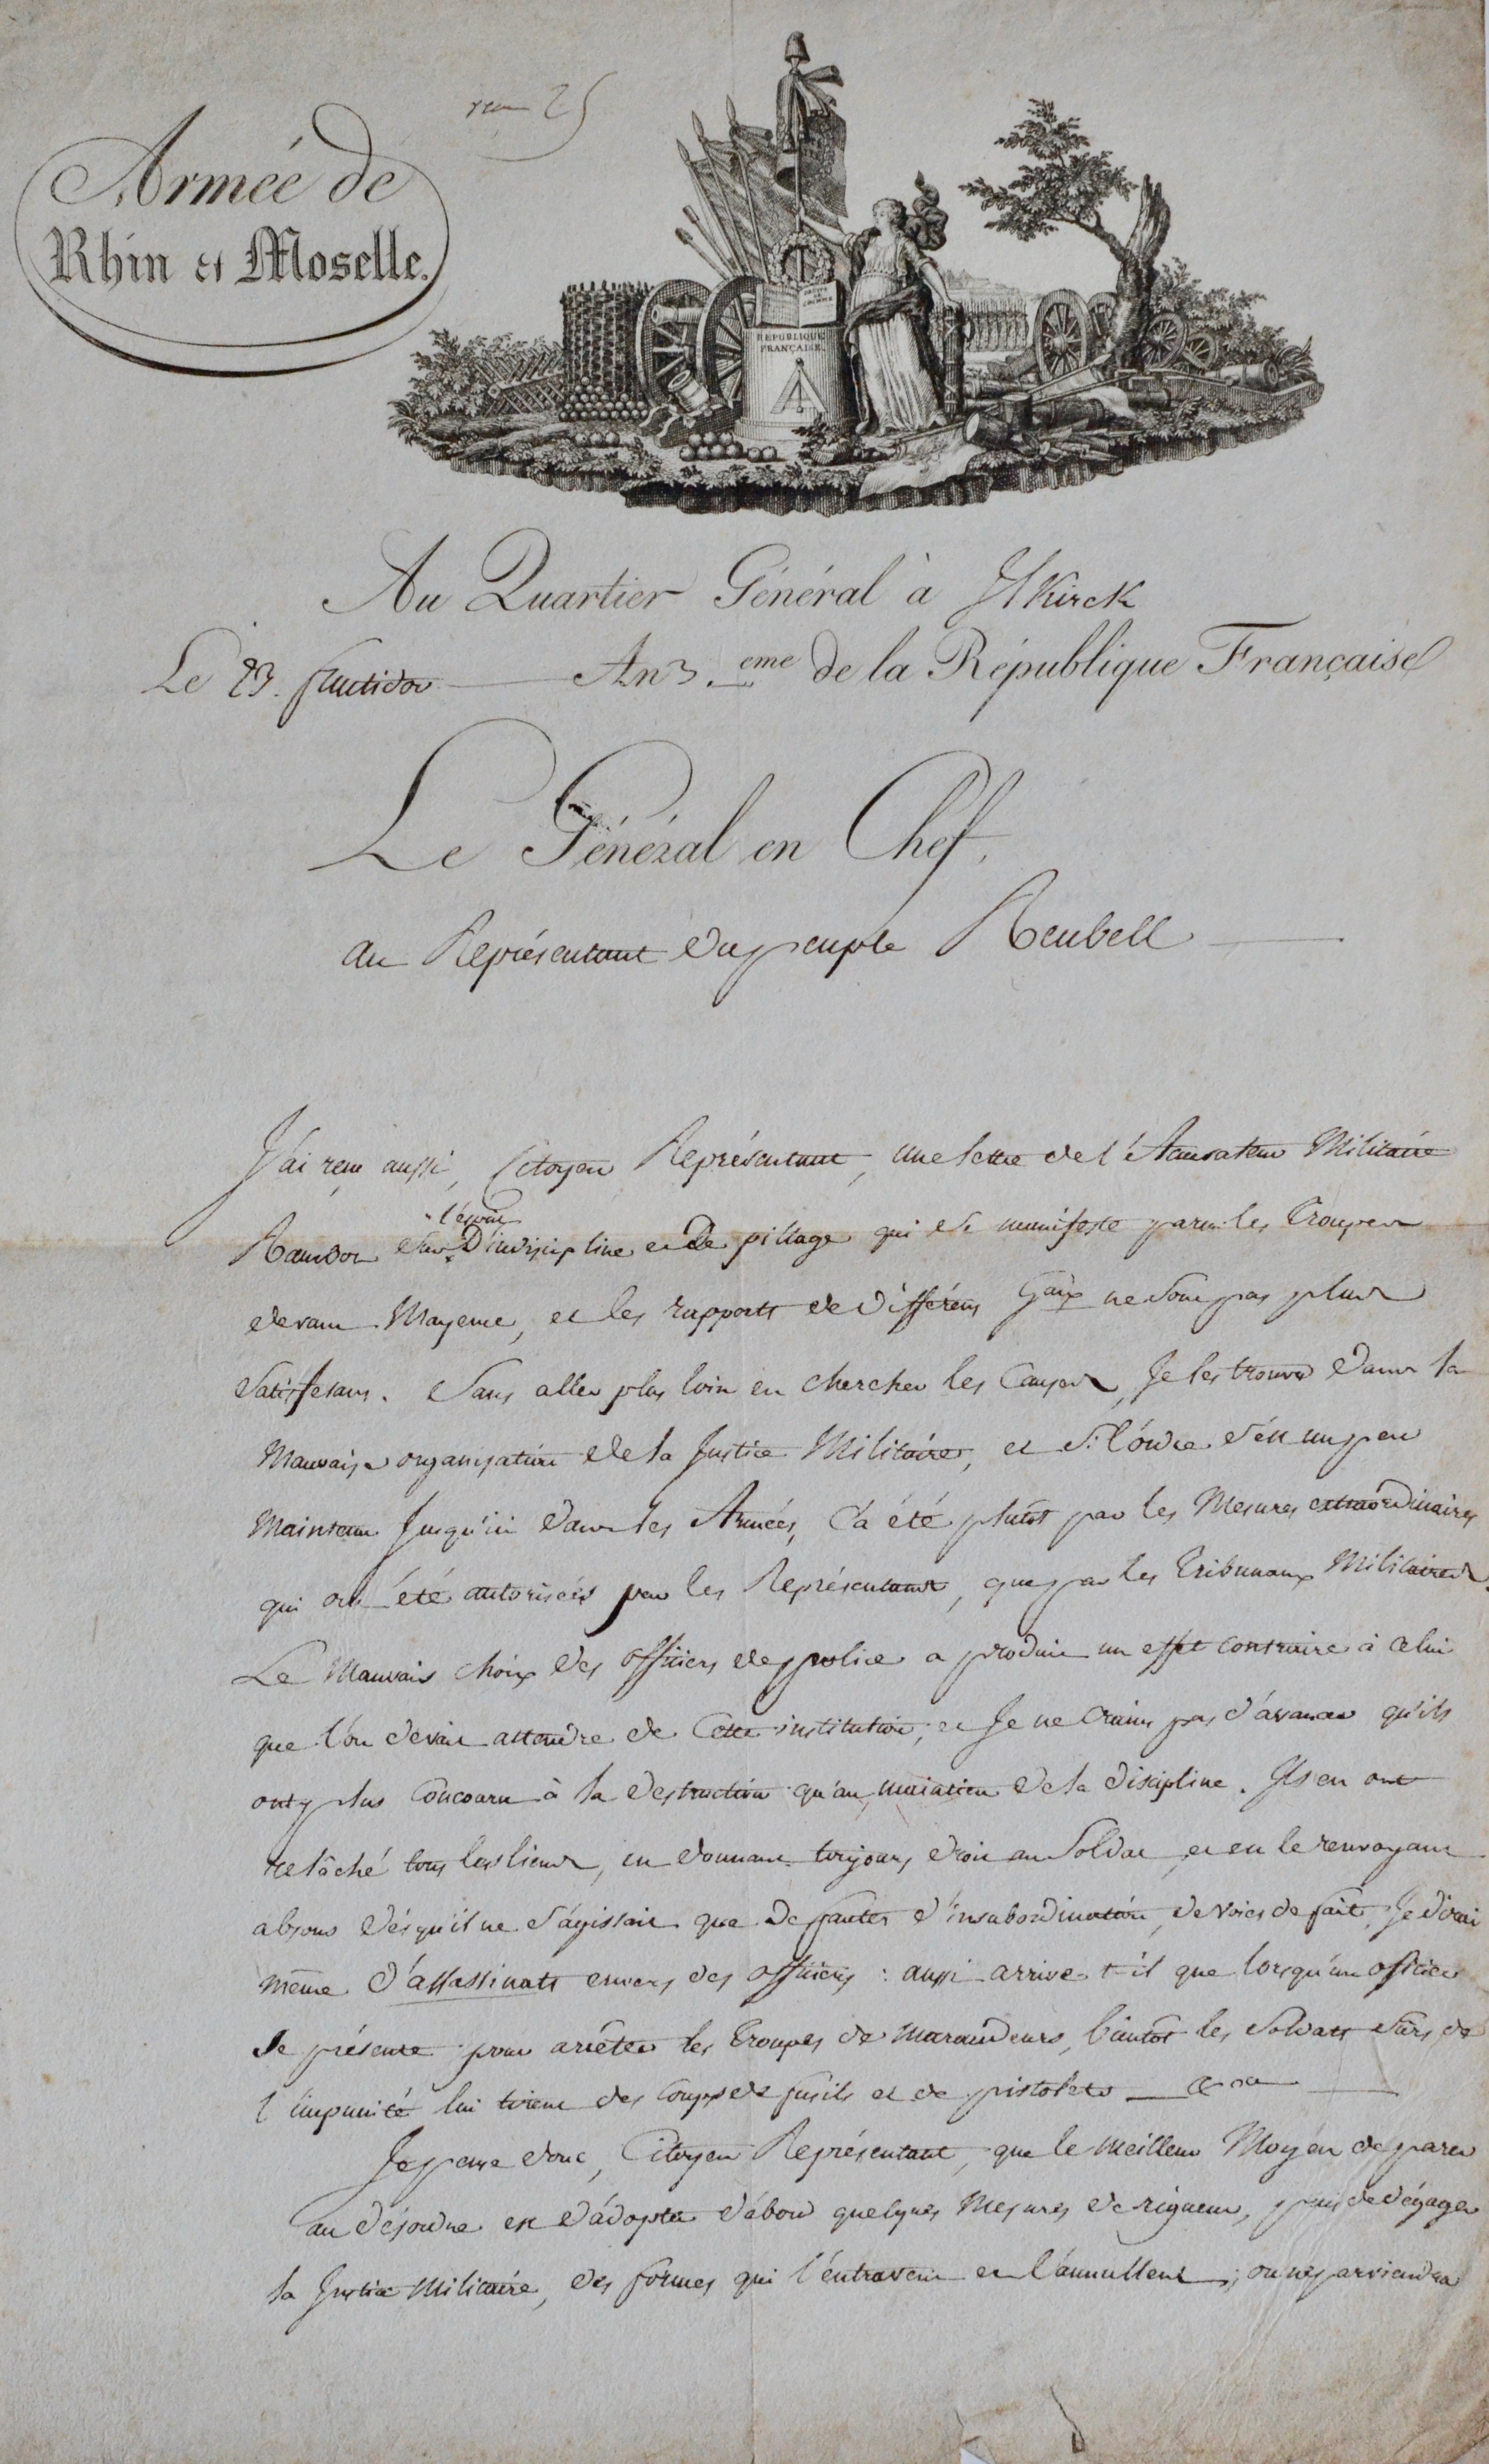 Armée de
Rhin et Moselle.
REPUBLIQUE
FRANÇAISE.
Au Quartier Général à Jlkirck
Le 23. fructidor An 3.eme de la République Française
Le Général en Chef,
au Représentant du peuple Reubell
J'ai reçu aussi, Citoyen Représentant, une lettre de l'Accusateur Militaire
l'esprit
sur D'indiscipline et De pillage qui se manifeste parmi les Troupes
devant Mayence, et les rapports de différens Gaux ne sont pas plus
satisfesans. Sans aller plus loin en chercher les Causes, Je les trouve dans la
Mauvaise organisation de la Justice Militaire, et si l'ordre s'est un peu
Maintenu Jusqu'ici dans les Armées, C'a été plutôt par les Mesures extraordinaires
qui ont été autorisées par les Représentans, que par les Tribunaux Militaires.
Le Mauvais choix des officiers de police a produit un effet contraire à celui
que l'on devait attendre de Cette institution, et Je ne Crains pas d'avancer qu'ils
ont plus Concouru à la destruction qu'au maintien de la discipline. Ils en ont
relâché tous les liens, en donnant toujours droit au Soldat, et en le renvoyant
absous dès qu'il ne s'agissait que de fautes d'insubordination, de voies de fait, Je dirai
même d'assassinats envers des officiers : aussi arrive t-il que lorsqu'un officier
se présente pour arrêter les Troupes de Maraudeurs, bientôt les Soldats sûrs de
l'impunité lui tirent des Coups de fusils et de pistolets
Je pense donc, Citoyen Représentant, que le meilleur Moyen de parer
au désordre est d'adopter d'abord quelques Mesures de rigueur, puis de dégager
la Justice Militaire, des formes qui l'entravent et l'annullent ; on ne parviendra